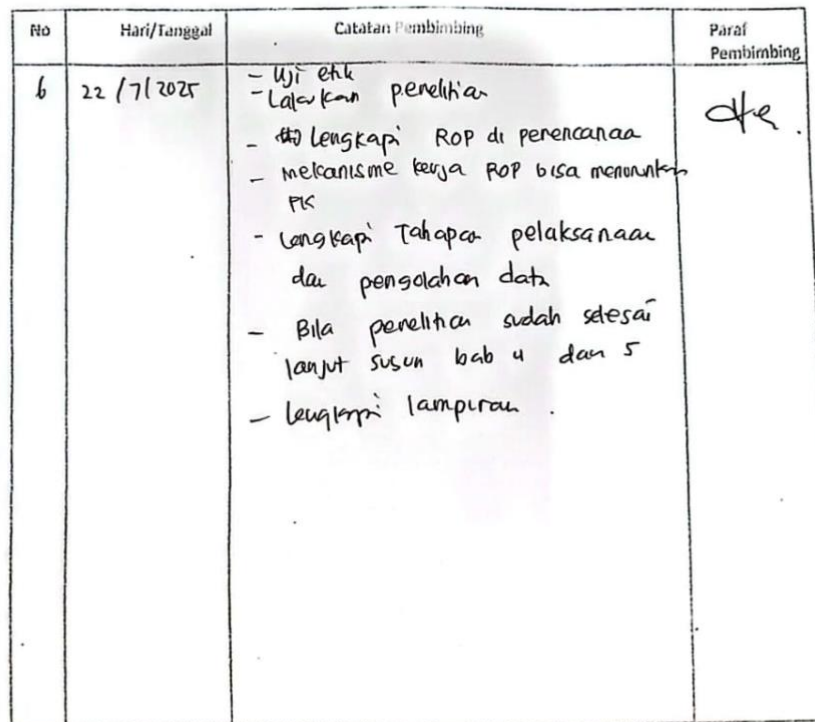 No Hari/Tanggal Catatan Pembimbing Paraf
Pembimbing
6 22/7/2025 - Uji etik
- Lakukan penelitian
- Lengkapi ROP di perencanaa
- Mekanisme kerja ROP bisa menurunkan
PK
- Lengkapi Tahapan pelaksanaan
dan pengolahan data
- Bila penelitian sudah selesai
lanjut susun bab 4 dan 5
- Lengkapi lampiran .